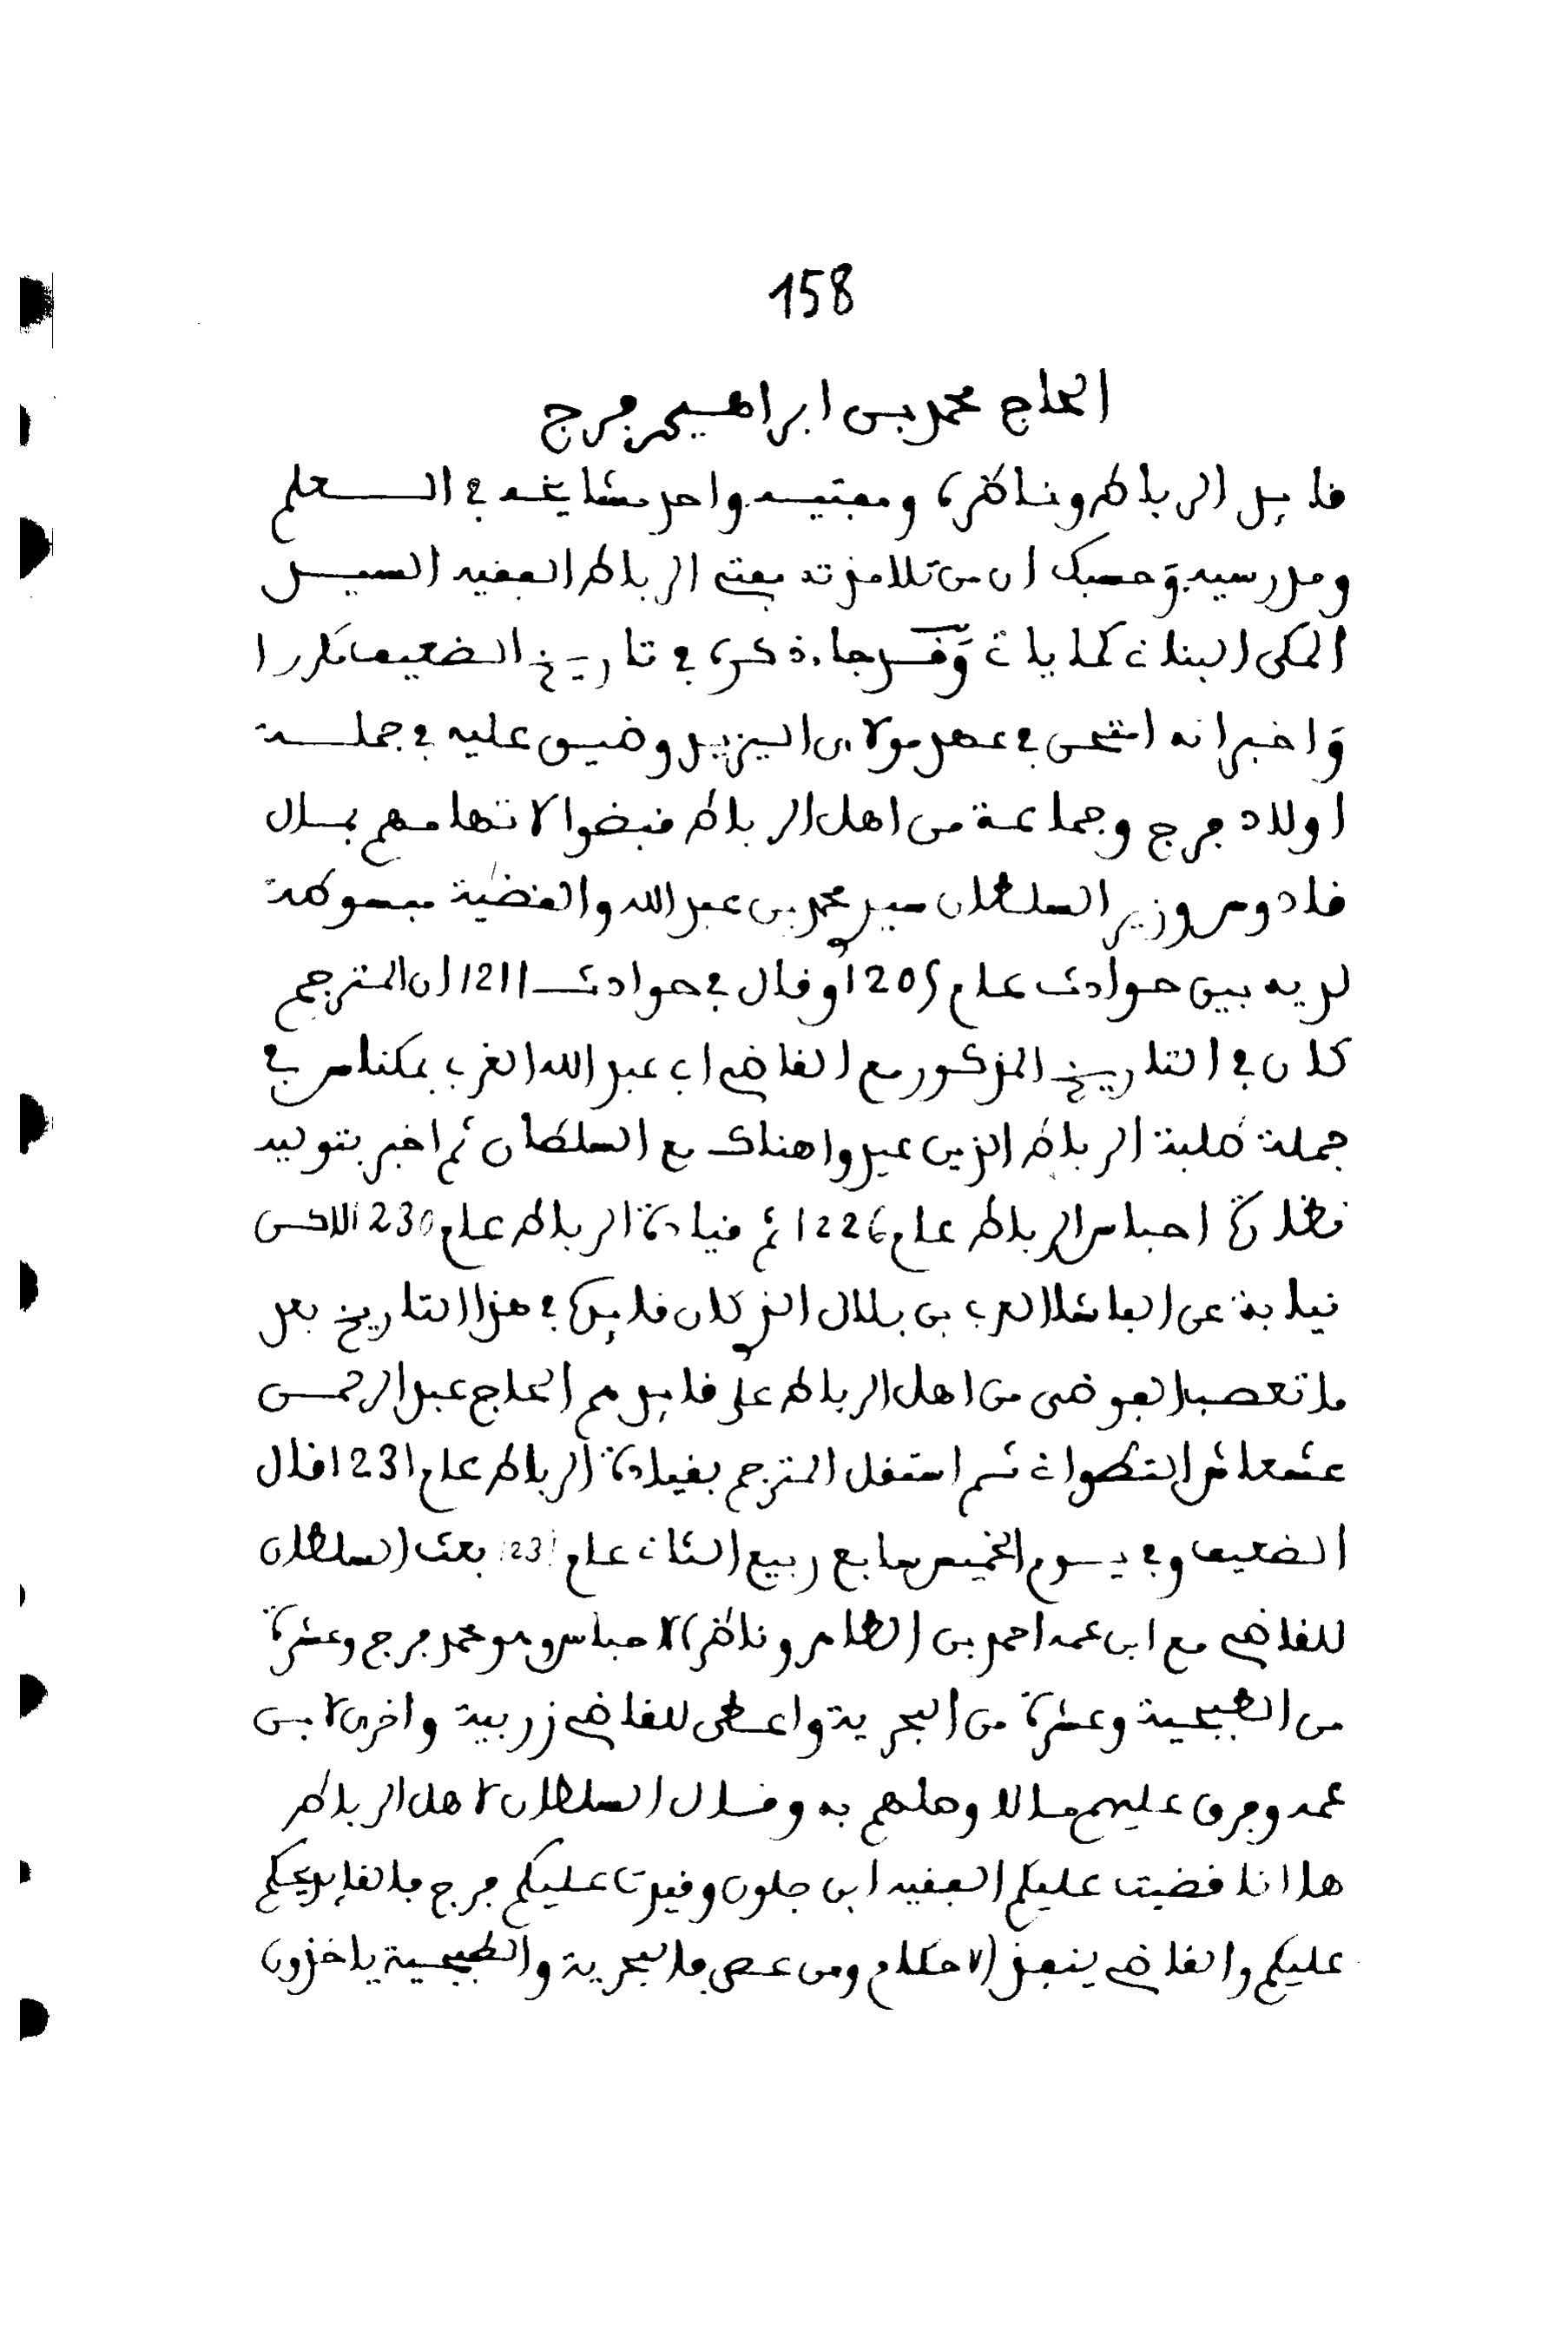 158
الحاج محمد بن ابراهيم فرج
قايد الرباط وناظره ومفتيه واحد مشايخه في العلم
ومدرسيه وحسبك ان من تلامذته مفتي الرباط الفقيه السيد
المكي البناني كما ياتي وقد جاء ذكره في تاريخ الضعيف مكررا
واخبر انه امتحن في عهد مولاي اليزيد وضيق عليه في جملة
اولاد فرج وجماعة من اهل الرباط قبضوا لاتهامهم بمال
قادوس وزير السلطان سيد محمد بن عبد الله والقضية مبسوطة
لديه بين حوادث عام 1205 وقال في حوادث 1211 ان المترجم
كان في التاريخ المذكور مع القاضي ابي عبد الله الغربي بمكناس في
جملة طلبة الرباط الذين عيدوا هناك مع السلطان ثم اخبر بتوليه
نظارة احباس الرباط عام 1226 ثم قيادة الرباط عام 1230 لاكن
نيابة عن الباشا العربي بن بلال الذي كان قايدا في هذا التاريخ بعد
ما تعصب الفوضى من اهل الرباط على قايدهم الحاج عبد الرحمن
عشعاش التطواني ثم استقل المترجم بقيادة الرباط عام 1231 قال
الضعيف وفي يوم الخميس سابع ربيع الثاني عام 1231 بعث السلطان
للقاضي مع ابن عمه احمد بن الطاهر وناظر الاحباس وهو محمد فرج وعشرة
من الطبجية وعشرة من البحرية واعطى للقاضي زربية واخرى لابن
عمه وفرق عليهم مالا وصلهم به وقال السلطان لاهل الرباط
ها انا قضيت عليكم الفقيه ابن جلون وقيدت عليكم فرج فالقايد يحكم
عليكم والقاضي ينفذ الاحكام ومن عصى فالبحرية والطبجية ياخذون